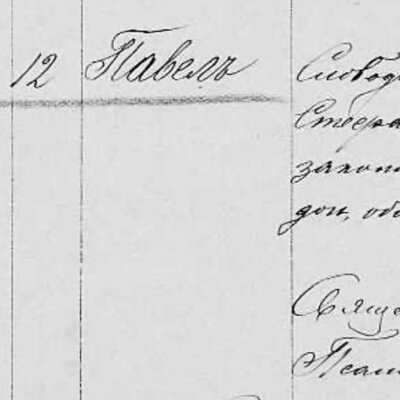 12 Павелъ
Слобод
Стефа
закон
дон, обо
Свяще
Псал